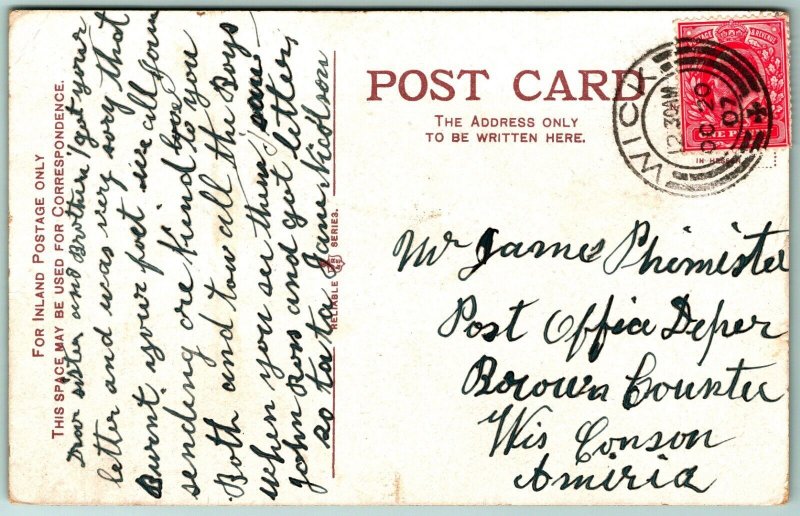 FOR INLAND POSTAGE ONLY
THIS SPACE MAY BE USED FOR CORRESPONDENCE.
Dear sister and Brother I got your
letter and was very sory that
Burnt your feet we all soun
sending are kind love to you
Both and tow all the Boys
when you see them
John Ross and got letter,
so ta ta Jane Nicolson
RELIABLE SERIES.
POST CARD
THE ADDRESS ONLY
TO BE WRITTEN HERE.
POSTAGE & REVENUE
ONE PENNY
WICK
12.30AM
DC 20
07
IN HESSEN
Mr James Phimister
Post Office Deper
Brown Countey
Wis Conson
Amiria